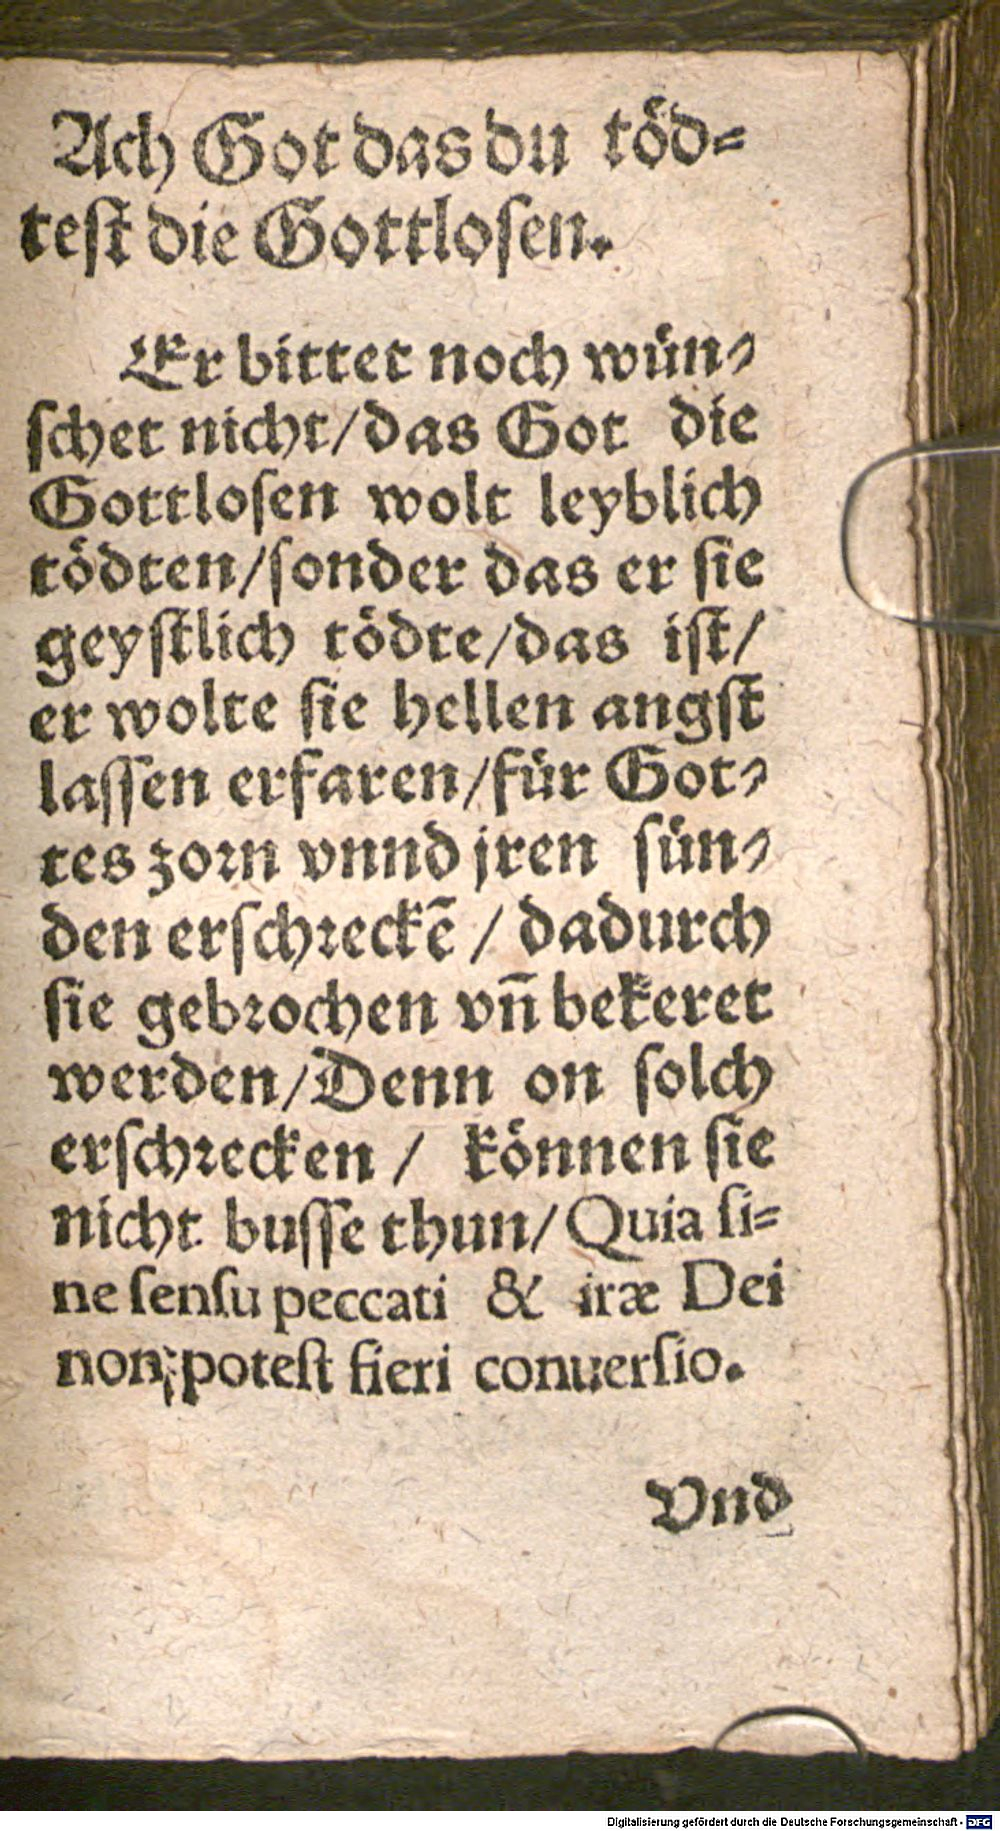 Ach Got das du töd⸗
teſt die Gottloſen.
Er bittet noch wün⸗
ſchet nicht/das Got die
Gottloſen wolt leyblich
tödten/ſonder das er ſie
geyſtlich tödte/das iſt/
er wolte ſie hellen angſt
laſſen erfaren/für Got⸗
tes zoꝛn vnnd jren ſün⸗
den erſchꝛeckẽ / dadurch
ſie gebꝛochen vñ bekeret
werden/Denn on ſolch
erſchꝛecken / können ſie
nicht buſſe thun/Quia ſi⸗
ne ſenſu peccati & iræ Dei
non poteſt fieri conuerſio.
Vnd
Digitalisierung gefördert durch die Deutsche Forschungsgemeinschaft - DFG